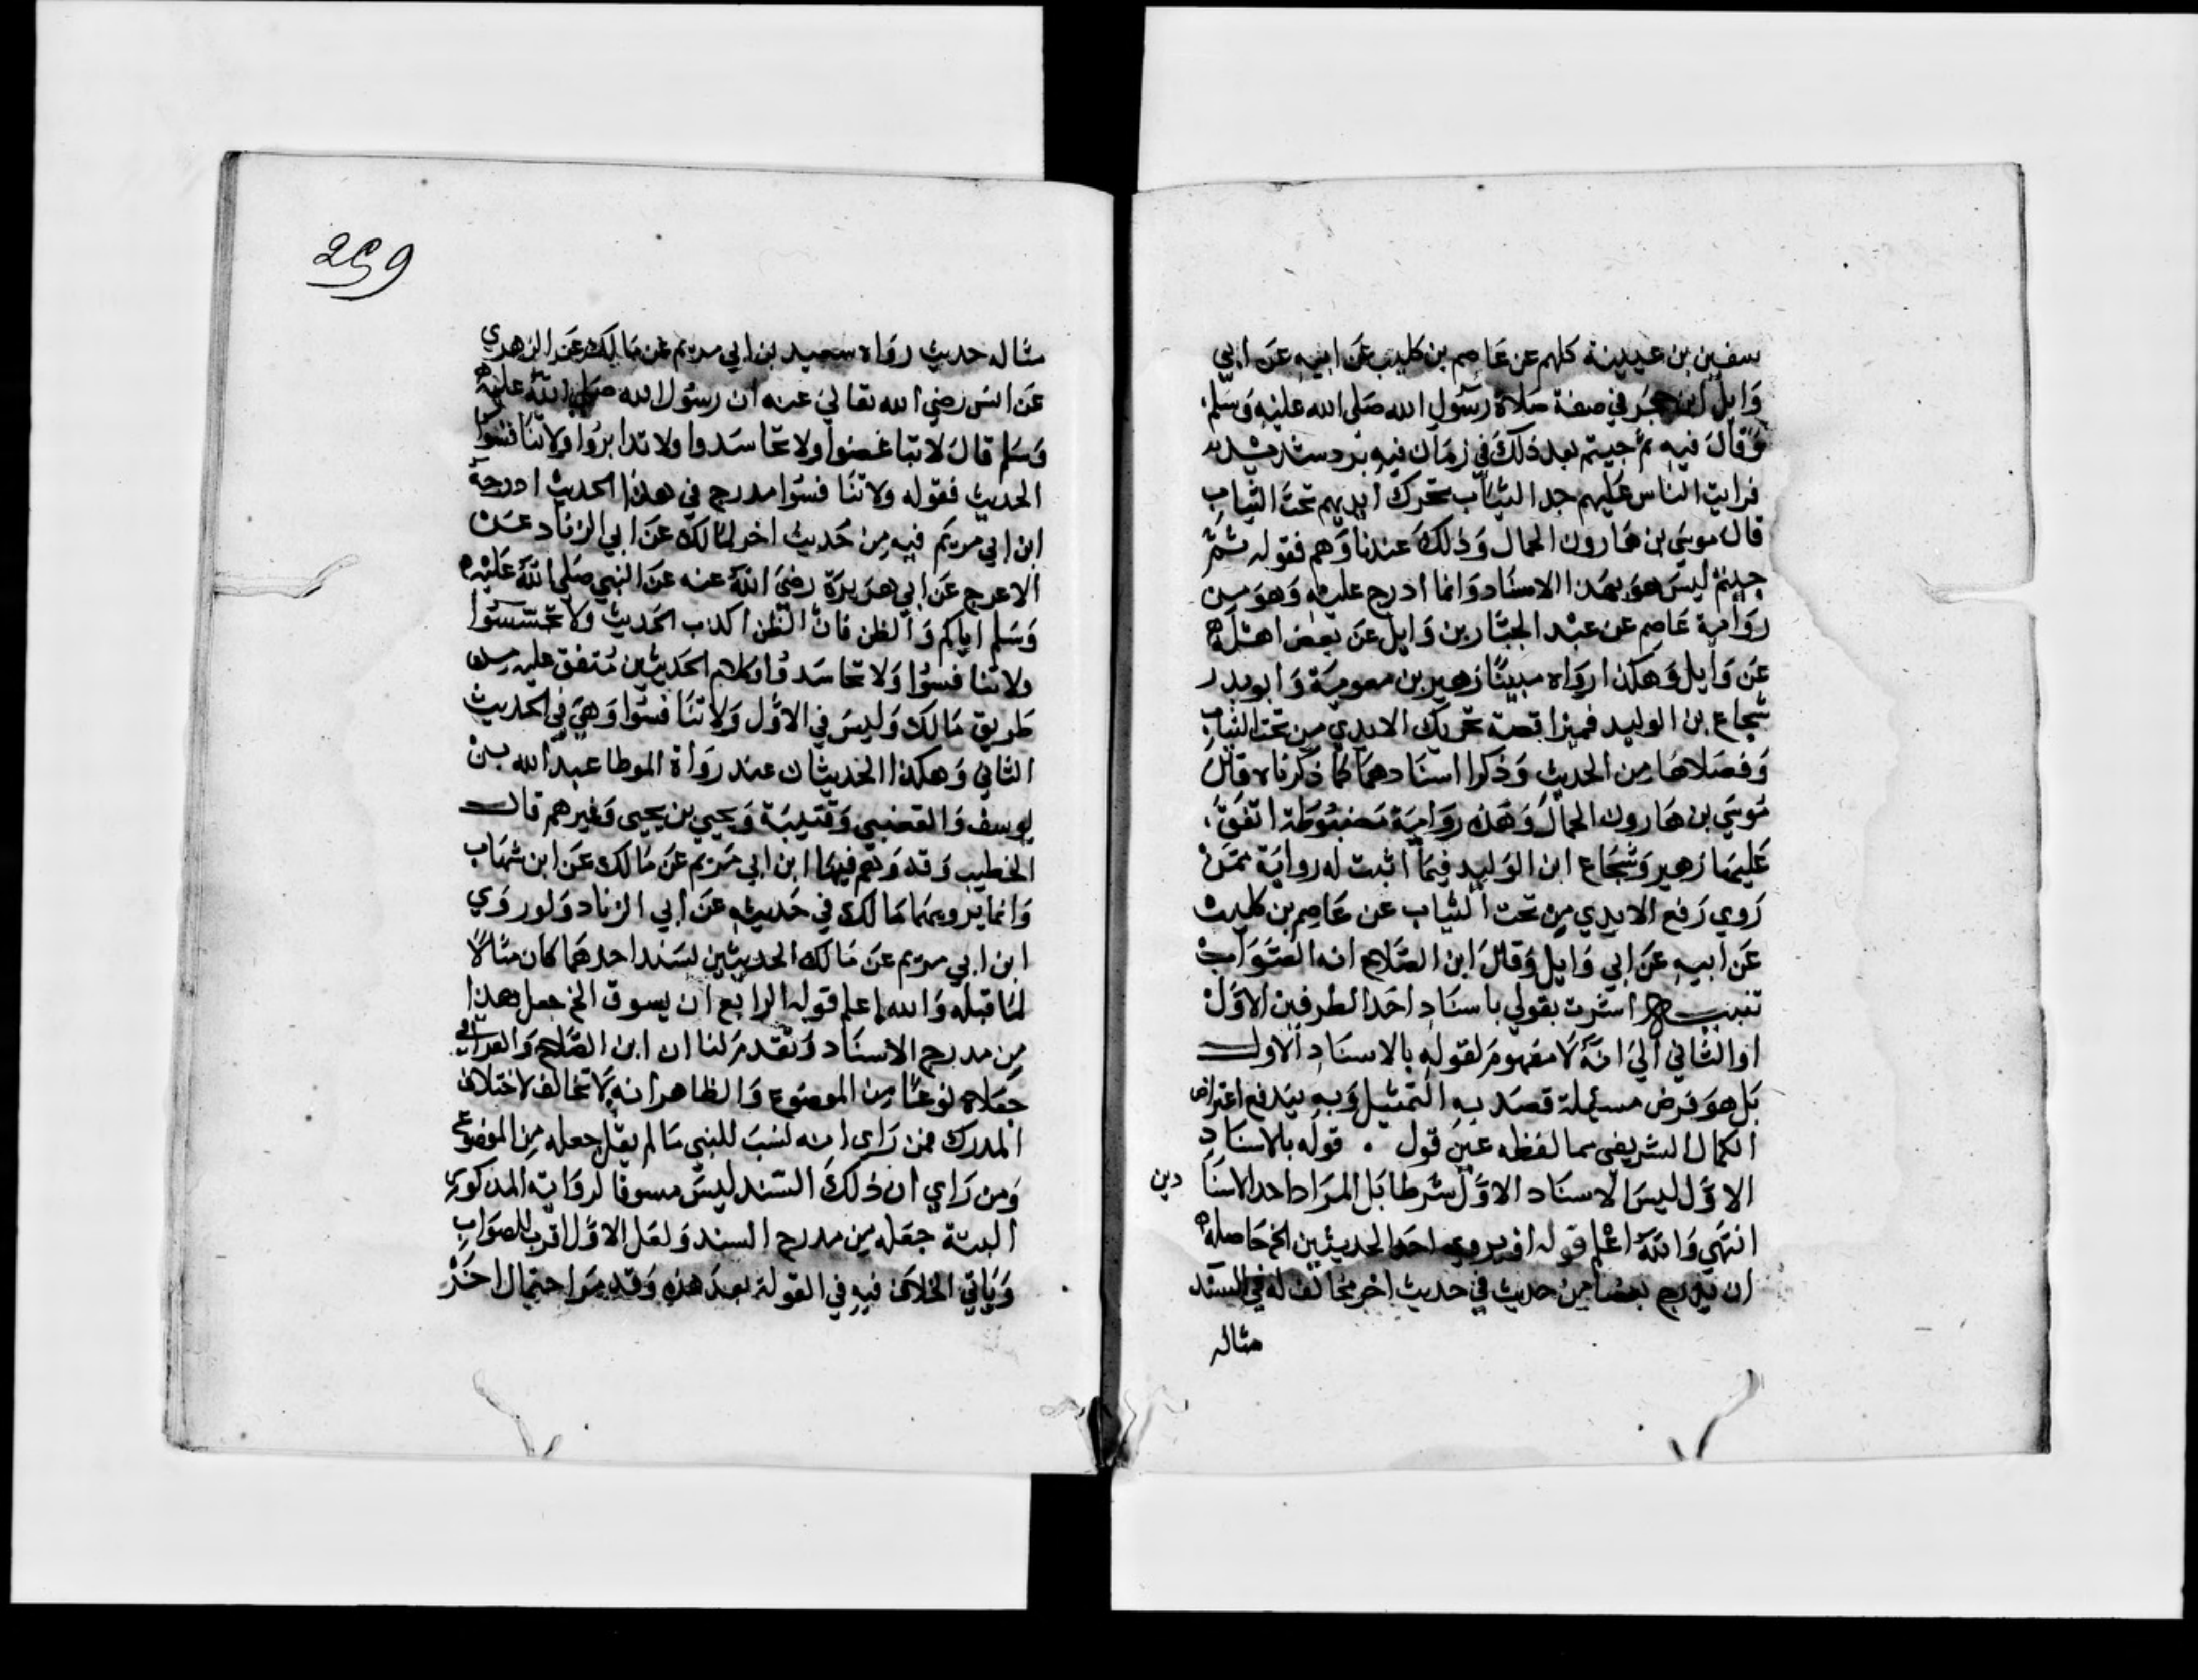 سفين بن عيينة كلهم عن عاصم بن كليب عن ابيه عن ابي
وايل ابن حجر في صفة صلاة رسول الله صلى الله عليه وسلم
وقال فيه ثم جيتم بعد ذلك في زمان فيه برد شديد
فرايت الناس عليهم جل الثياب تحرك ايديهم تحت الثياب
قال موسي بن هارون الحمال وذلك عندنا وهم فقوله ثم
جيتم ليس هو بهذا الاسناد وانما ادرج عليه وهو من
رواية عاصم عن عبد الجبار بن وايل عن بعض اهله
عن وايل وهكذا رواه مبينا زهير بن معوية وابو بدر
شجاع بن الوليد فميزا قصة تحريك الايدي من تحت الثياب
وفصلاها من الحديث وذكرا اسنادهما كما ذكرناه قال
موسي بن هارون الحمال وهذه رواية مضبوطة اتفق
عليها زهير وشجاع ابن الوليد فيما اثبت له رواية ممن
روي رفع الايدي من تحت الثياب عن عاصم بن كليب
عن ابيه عن ابي وايل وقال ابن الصلاح انه الصواب
تنبيه اشرت بقولي باسناد احد الطرفين الاول
او الثاني الي انه لا مفهوم لقوله بالاسناد الاول
بل هو فرض مسئلة قصد به التمثيل وبه يندفع اعتراض
الكمال الشريفي بما لفظه عين قول . قوله بالاسناد
الاول ليس الاسناد الاول شرطا بل المراد احد الاسنا دين
انتهي والله اعلم قوله او يروي احد الحديثين الخ حاصله
ان يدرج بعضا من حديث في حديث اخر مخالف له في السند
مثاله
259
مثاله حديث رواه سعيد بن ابي مريم عن مالك عن الزهري
عن انس رضي الله تعالي عنه ان رسول الله صلى الله عليه
وسلم قال لا تباغضوا ولا تحاسدوا ولا تدابروا ولا تنافسوا
الحديث فقوله ولا تنافسوا مدرج في هذا الحديث ادرجه
ابن ابي مريم فيه من حديث اخر لمالك عن ابي الزناد عن
الاعرج عن ابي هريرة رضي الله عنه عن النبي صلى الله عليه
وسلم اياكم والظن فان الظن اكذب الحديث ولا تجسسوا
ولا تنافسوا ولا تحاسدوا وكلام الحديثين متفق عليه من
طريق مالك وليس في الاول ولا تنافسوا وهي في الحديث
الثاني وهكذا الحديثان عند رواة الموطا عبد الله بن
يوسف والقعنبي وقتيبة ويحيي بن يحيى وغيرهم قال
الخطيب وقد وهم فيها ابن ابي مريم عن مالك عن ابن شهاب
وانما يرويها مالك في حديثه عن ابي الزناد ولو روي
ابن ابي مريم عن مالك الحديثين بسند احدهما كان مثالا
لما قبله والله اعلم قوله الرابع ان يسوق الخ جعل هذا
من مدرج الاسناد وتقدم لنا ان ابن الصلاح والعراقي
جعلاه نوعا من الموضوع والظاهر انه لا تخالف لاختلاف
المدرك فمن راي انه نسب للنبي ما لم يقل جعله من الموضوع
ومن راي ان ذلك السند ليس مسوقا لرواية المذكور
البتة جعله من مدرج السند ولعل الاول اقرب للصواب
وياتي الخلاف فيه في القولة بعد هذه وقد مر احتمال اخر